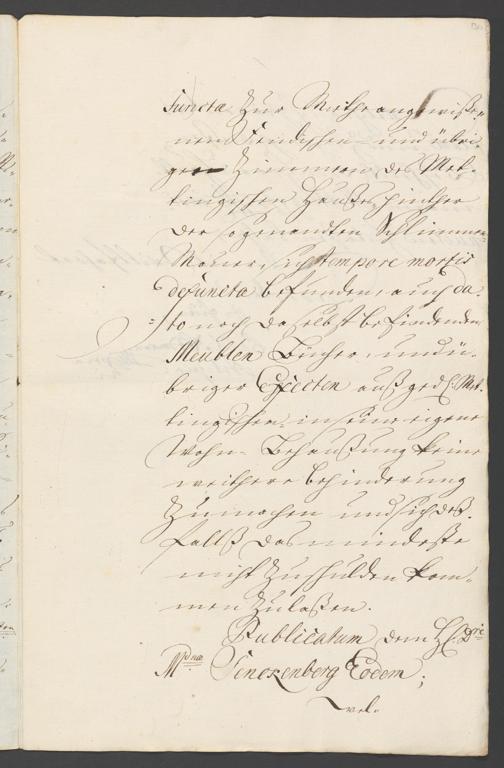 Functa Zur Miethe angewiße-
nen Fendischen und übri-
gen Zimmern des Met-
tingischen Haußes hinther
der sogenandten Schlimmen
Mauer, sich tempore mortis
defuncta befunden, auch da-
to noch daselbst befindenden
Meublen Bücher, und ü-
briger Effecten auß gedl: Met-
tingischen, in seine eigene
Wohn-Behaußung keine
weithere behinderung
Zu machen und sich deß-
fallß das mindeste
nicht Zu schulden kom-
men Zu laßen.
Publicatum dem H: Drie
Mednae Senckenberg Eodem,